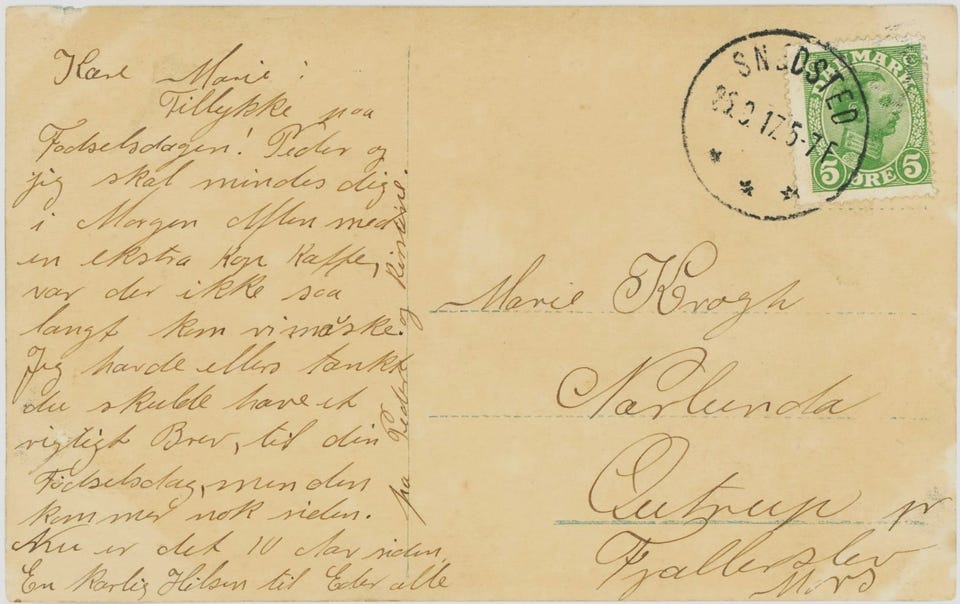 Kære Marie!
Tillykke paa
Fødselsdagen! Peder og
jeg skal mindes dig
i Morgen Aften med
en ekstra Kop Kaffe,
var der ikke saa
langt kom vi måske.
Jeg havde ellers tænkt
du skulde have et
rigtigt Brev, til din
Fødselsdag, men den
kommer nok siden.
Nu er det 10 Aar siden,
En kærlig Hilsen til Eder alle
fra Peder og Kirstine.
SNEDSTED
17.5-7 F
DANMARK
5 ØRE 5
Marie Krogh
Nørlunda
Outrup pr
Fjallerslev
Mors